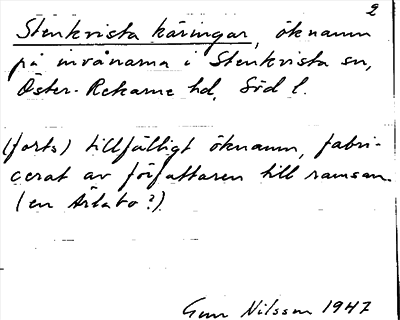 2
Stenkvista käringar, öknamn
på invånarna i Stenkvista sn,
Öster-Rekarne hd, Söd l.
(forts) tillfälligt öknamn, fabri-
cerat av författaren till ramsan.
(en Ärlabo?).
Gun Nilsson 1947